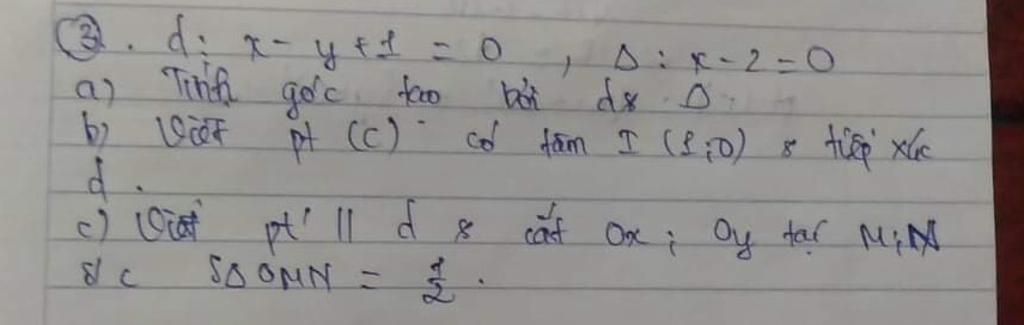 (3). d: x - y + 1 = 0 , Δ: x - 2 = 0
a) Tính góc tạo bởi d & Δ.
b) Viết pt (C) có tâm I (1;0) & tiếp xúc
d.
c) Viết pt // d & cắt Ox; Oy tại M; N
s/c SΔOMN = 1/2.